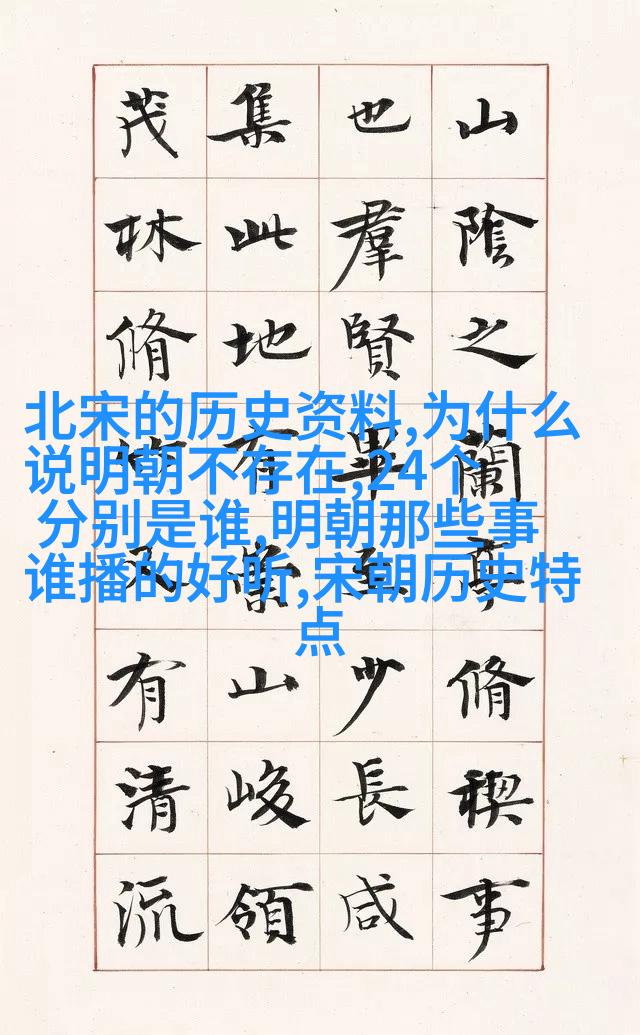 山陰之蘭亭脩稧事
也羣賢畢至少長咸
集此地有崇山峻領
茂林脩竹又有清流
北宋的历史资料,为什么
说明朝不存在,24个
分别是谁,明朝那些事
谁播的好听,宋朝历史特
点